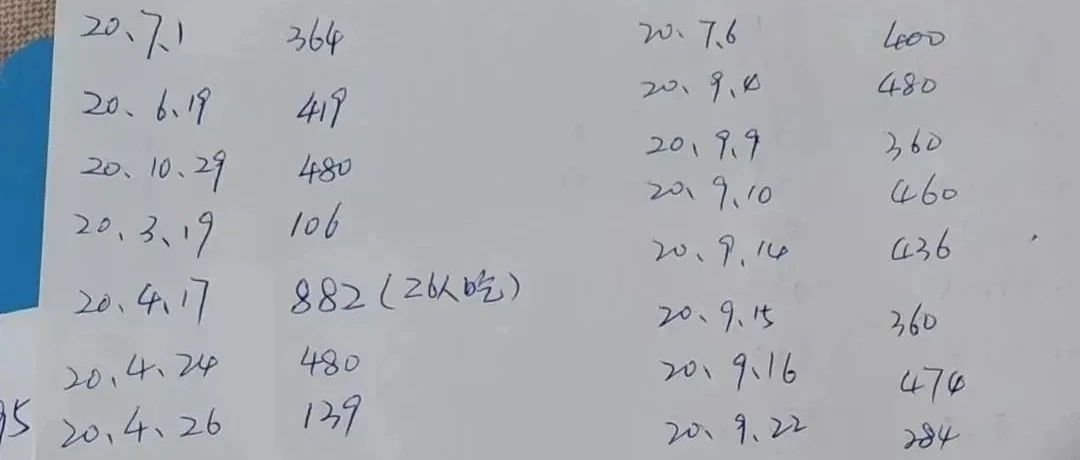 20、7、1 364
20、6、19 419
20、10、29 480
20、3、19 106
20、4、17 882(26人吃)
20、4、24 480
20、4、26 139
20、7、6 400
20、9、4 480
20、9、9 360
20、9、10 460
20、9、14 436
20、9、15 360
20、9、16 474
20、9、22 284